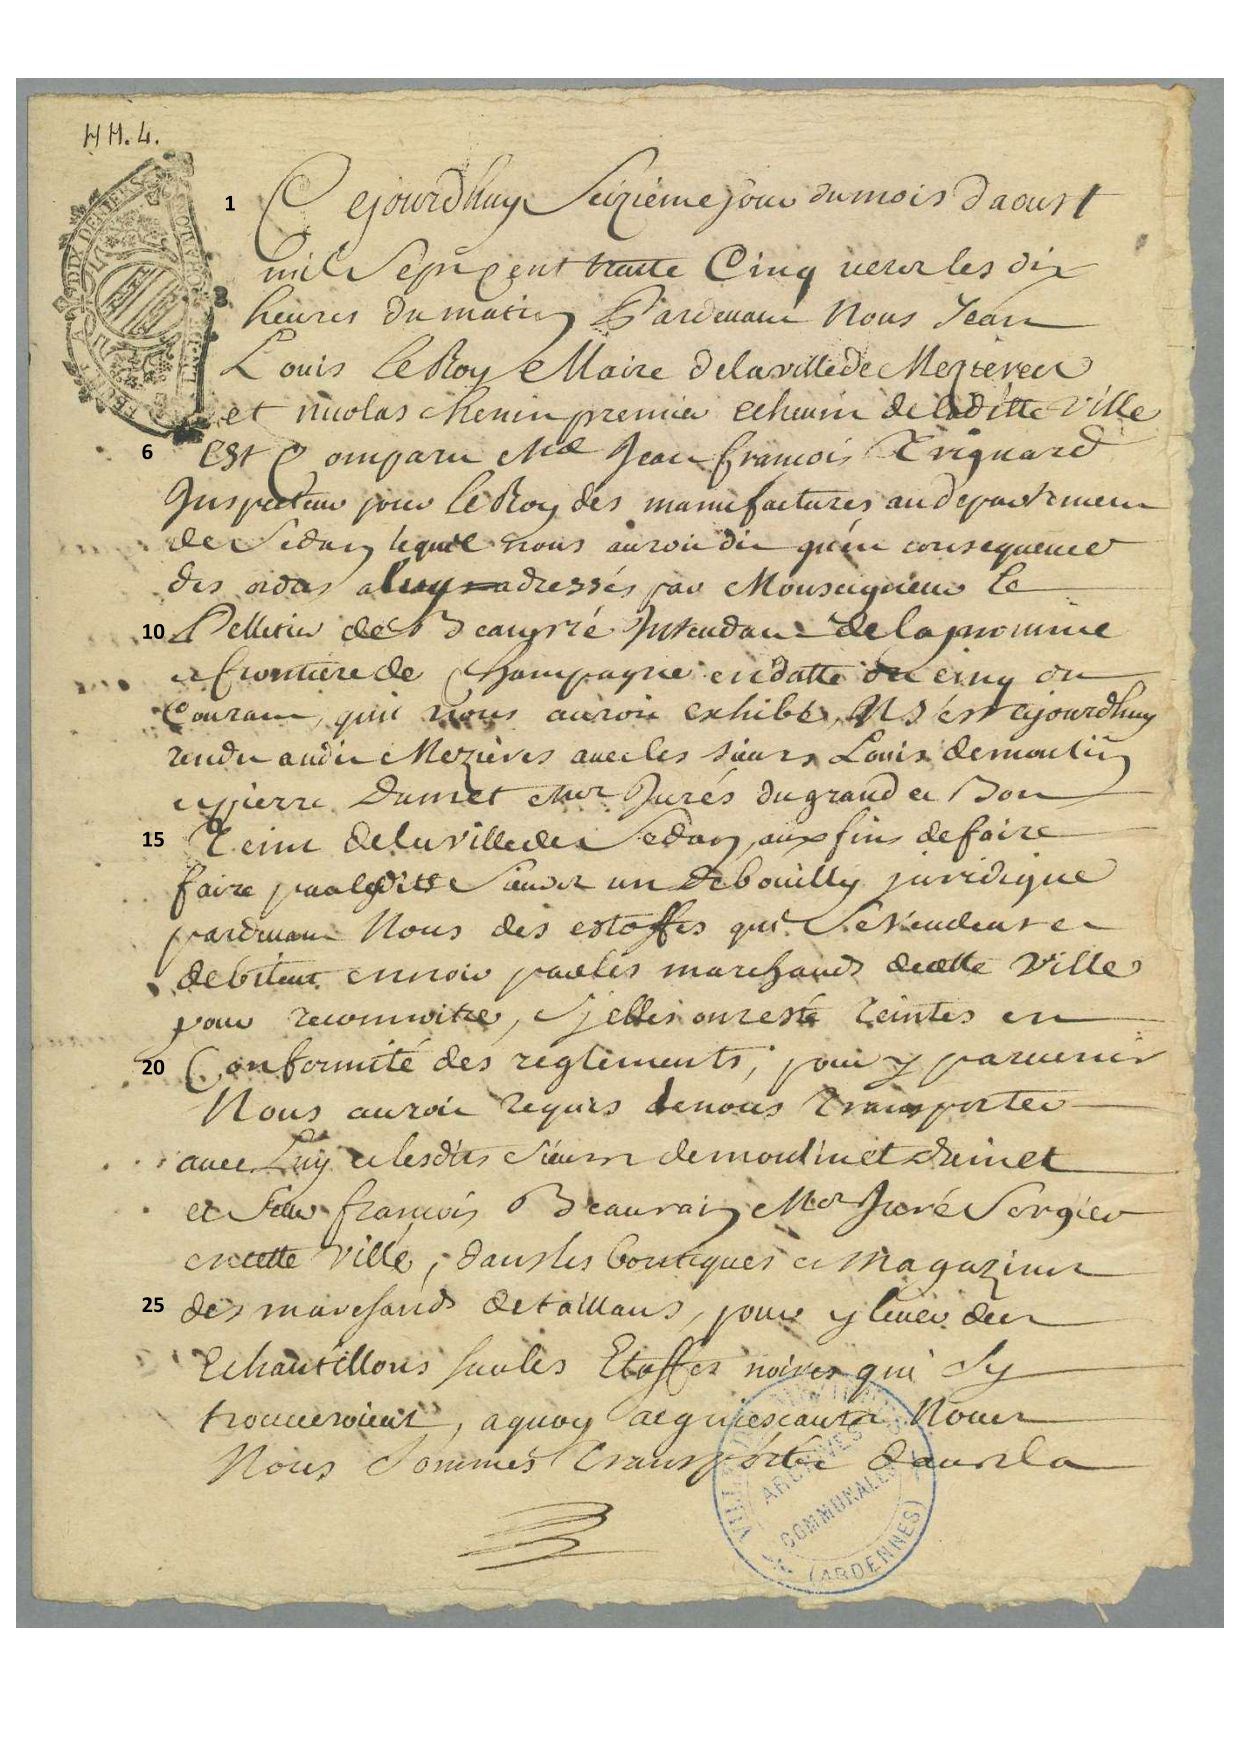 HH.4.
1 Cejourdhuy Seizieme jour du mois daoust
mil Sept Cent trente Cinq vers les dix
heures du matin Pardevant Nous Jean
Louis Le Roy Maire de la ville de Mezieres
et nicolas chenin premier echevin de laditte Ville
6 Est Comparu Me Jean françois Triquard
Inspecteur pour Le Roy des manufactures au departement
de Sedan lequel nous auroit dit qu'en consequence
des ordres a luy adressés par Monseigneur Le
10 Pelletier de Beaupré Intendant de la province
et frontiere de Champagne en datte du cinq du
Courant, qu'il nous auroit exhibé, Il s'est cejourdhuy
rendu audit Mezières avec les sieurs Louis demoulin
et pierre Dumet Mes Jurés du grand et Bon
15 Teint de la ville de Sedan, aux fins de faire
faire par lesdits Sieurs un Debouilly juridique
pardevant Nous des estoffes qui Se vendent et
debitent en noir par les marchands de cette Ville
pour reconnoitre, Sy elles ont esté teintes en
20 Conformité des reglements, pour y parvenir
Nous auroit requis de nous transporter
avec Luy et lesdits Sieurs demoulin et dumet
et Sieur françois Beauvais Me Juré Sergier
en cette Ville, dans les boutiques et Magazins
25 des marchands detaillans, pour y lever des
Echantillons sur les Etoffes noires qui Sy
trouveroient, a quoy acquiescant Nous
Nous Sommes transporté dans la
ARCHIVES
COMMUNALES
(ARDENNES)